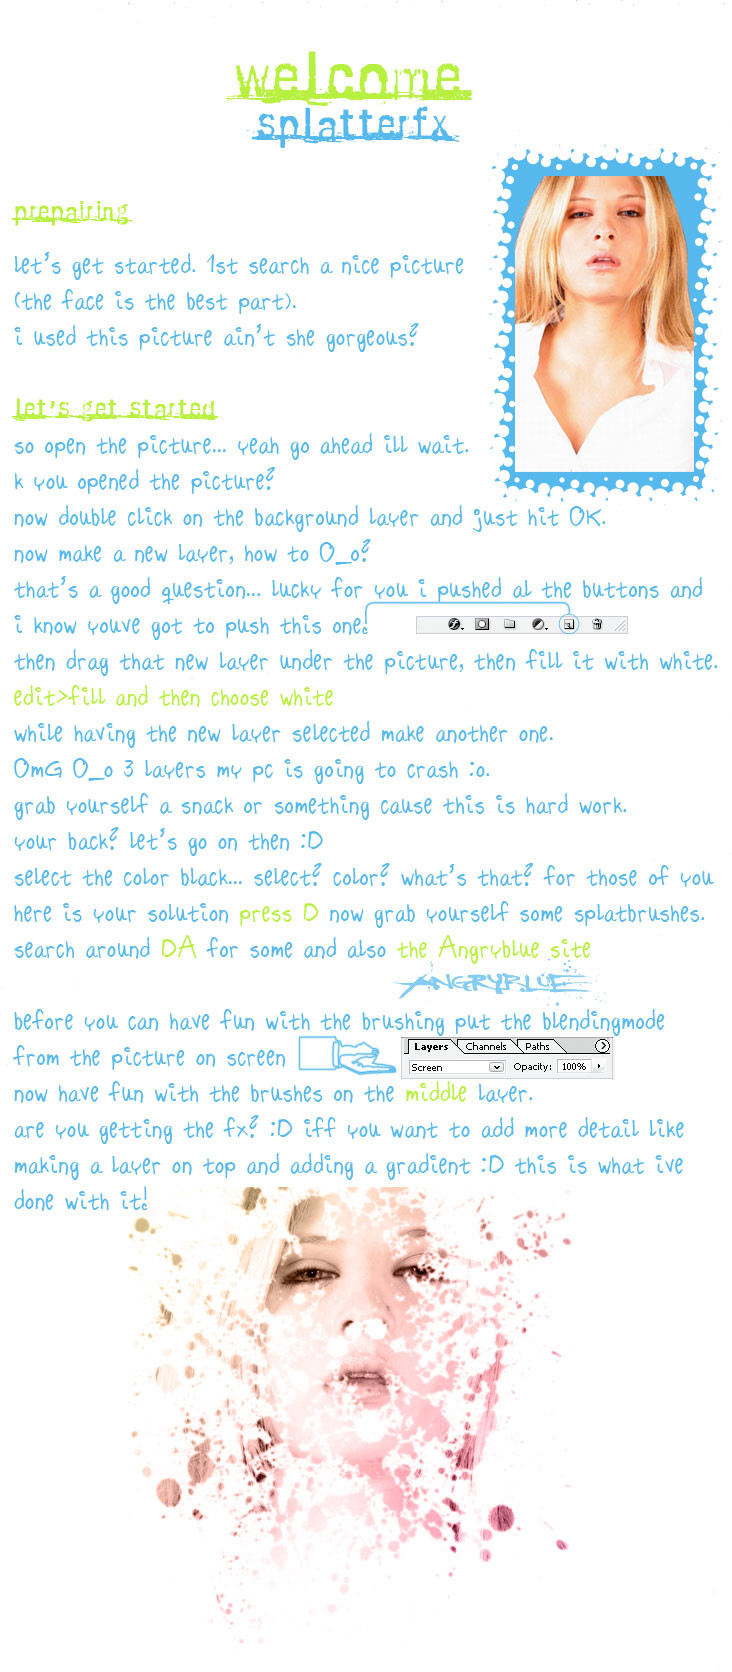 welcome
splatterfx
prepairing
let's get started. 1st search a nice picture
(the face is the best part).
i used this picture ain't she gorgeous?
let's get started
so open the picture... yeah go ahead ill wait.
k you opened the picture?
now double click on the background layer and just hit OK.
now make a new layer, how to O_o?
that's a good question... lucky for you i pushed al the buttons and
i know youve got to push this one!
then drag that new layer under the picture, then fill it with white.
edit>fill and then choose white
while having the new layer selected make another one.
OmG O_o 3 layers my pc is going to crash :o.
grab yourself a snack or something cause this is hard work.
your back? let's go on then :D
select the color black... select? color? what's that? for those of you
here is your solution press D now grab yourself some splatbrushes.
search around DA for some and also the Angryblue site
ANGRYBLUE
before you can have fun with the brushing put the blendingmode
from the picture on screen
Layers Channels Paths
Screen Opacity: 100%
now have fun with the brushes on the middle layer.
are you getting the fx? :D iff you want to add more detail like
making a layer on top and adding a gradient :D this is what ive
done with it!